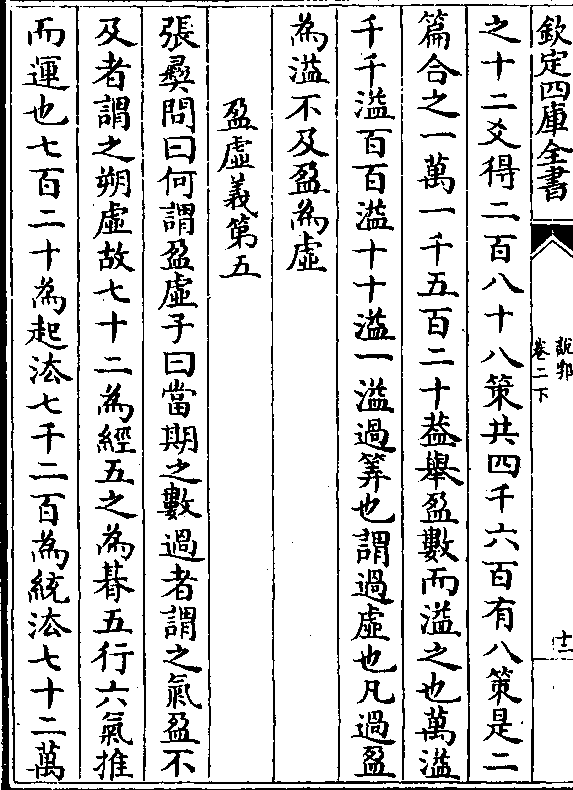 欽定四庫全書
說郛
卷二下
十二
之十二爻得二百八十八策共四千六百有八策是二
篇合之一萬一千五百二十葢舉盈數而溢之也萬溢
千千溢百百溢十十溢一溢過筭也謂過虛也凡過盈
為溢不及盈為虛
盈虛義第五
張彛問曰何謂盈虛子曰當期之數過者謂之氣盈不
及者謂之朔虛故七十二為經五之為朞五行六氣推
而運也七百二十為起法七千二百為統法七十二萬